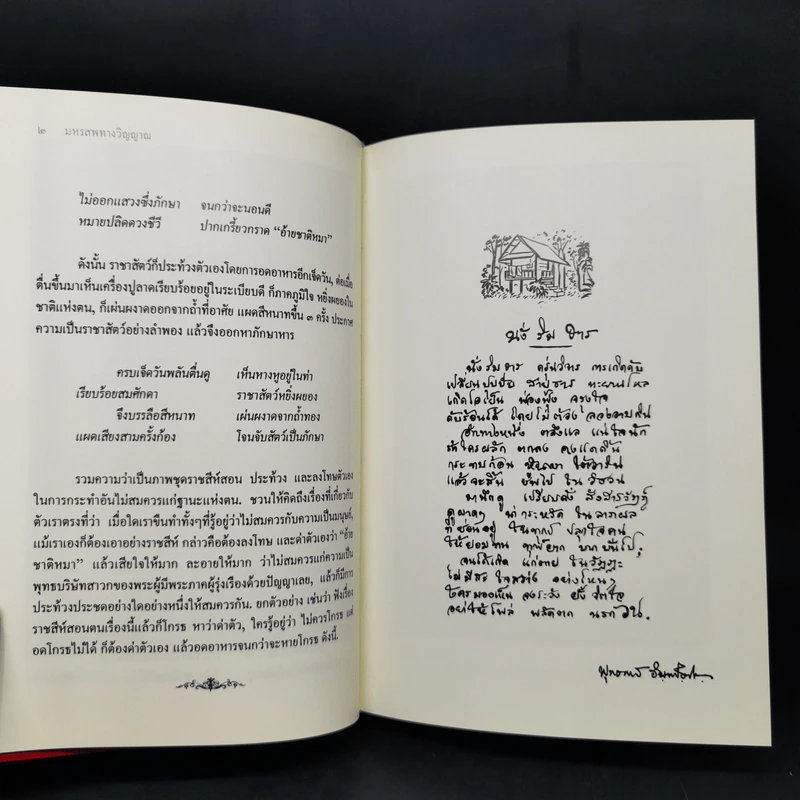 ๒ มหรสพทางวิญญาณ
ไม่ออกแสวงซึ่งภักษา จนกว่าจะนอนดี
หมายปลิดดวงชีวี ปากเกรี้ยวกราด “อ้ายชาติหมา”
ดังนั้น ราชาสัตว์ก็ประท้วงตัวเองโดยการอดอาหารอีกเจ็ดวัน, ต่อเมื่อ
ตื่นขึ้นมาเห็นเครื่องปูลาดเรียบร้อยอยู่ในระเบียบดี ก็ภาคภูมิใจ หยิ่งผยองใน
ชาติแห่งตน, ก็เผ่นผงาดออกจากถ้ำที่อาศัย แผดสีหนาทขึ้น ๓ ครั้ง ประกาศ
ความเป็นราชาสัตว์อย่างลำพอง แล้วจึงออกหาภักษาหาร
ครบเจ็ดวันพลันตื่นดู เห็นหางหูอยู่ในท่า
เรียบร้อยสมศักดา ราชาสัตว์หยิ่งผยอง
จึงบรรลือสีหนาท เผ่นผงาดจากถ้ำทอง
แผดเสียงสามครั้งก้อง โจนจับสัตว์เป็นภักษา
รวมความว่าเป็นภาพชุดราชสีห์สอน ประท้วง และลงโทษตัวเอง
ในการกระทำอันไม่สมควรแก่ฐานะแห่งตน. ชวนให้คิดถึงเรื่องที่เกี่ยวกับ
ตัวเราตรงที่ว่า เมื่อใดเราขืนทำทั้งๆที่รู้อยู่ว่าไม่สมควรกับความเป็นมนุษย์,
แม้เราเองก็ต้องเอาอย่างราชสีห์ กล่าวคือต้องลงโทษ และด่าตัวเองว่า “อ้าย
ชาติหมา” แล้วเสียใจให้มาก ละอายให้มาก ว่าไม่สมควรแก่ความเป็น
พุทธบริษัทสาวกของพระผู้มีพระภาคผู้รุ่งเรืองด้วยปัญญาเลย, แล้วก็มีการ
ประท้วงประชดอย่างใดอย่างหนึ่งให้สมควรกัน. ยกตัวอย่าง เช่นว่า ฟังเรื่อง
ราชสีห์สอนตนเรื่องนี้แล้วก็โกรธ หาว่าด่าตัว, ใครรู้อยู่ว่า ไม่ควรโกรธ แต่
อดโกรธไม่ได้ ก็ต้องด่าตัวเอง แล้วอดอาหารจนกว่าจะหายโกรธ ดังนี้.
นั่ง ริม ธาร
นั่ง ริม ธาร
สายธาร
เกิดไอเย็น ฟ่องฟุ้ง จรุงใจ
ดับร้อนได้ โดยไม่ต้อง
อีกทางหนึ่ง ตลึงแล
กระทบก้อน
แล้วจะสิ้น
มานึกดู เปรียบดั่ง สังสารวัฏฏ์
ให้ยอมทน ทุกข์ยาก
จนได้เกิด แก่ตาย ในวัฏฏะ
ไม่มีสระ ใจสว่าง อย่างไหนๆ
ใครมองเห็น จงระวัง ยั้ง จิตใจ
อย่าให้โผล่ พลัดตก นรกวน.
พุทธทาส อินทปัญโญ